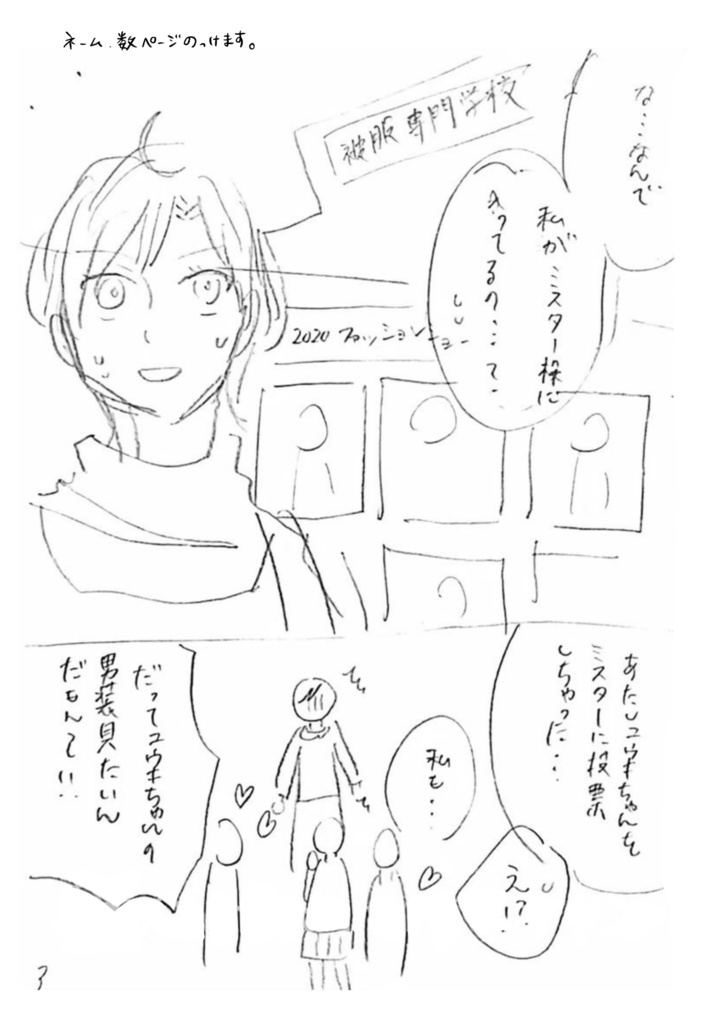 ネーム、数ページのっけます。
な…なんで
被服専門学校
私がミスター枠に
入ってるの……て、
2020 ファッションショー
あたしユウキちゃんを
ミスターに投票
しちゃった…
え!?
私も…
だってユウキちゃんの
男装見たいん
だもんて!!
3